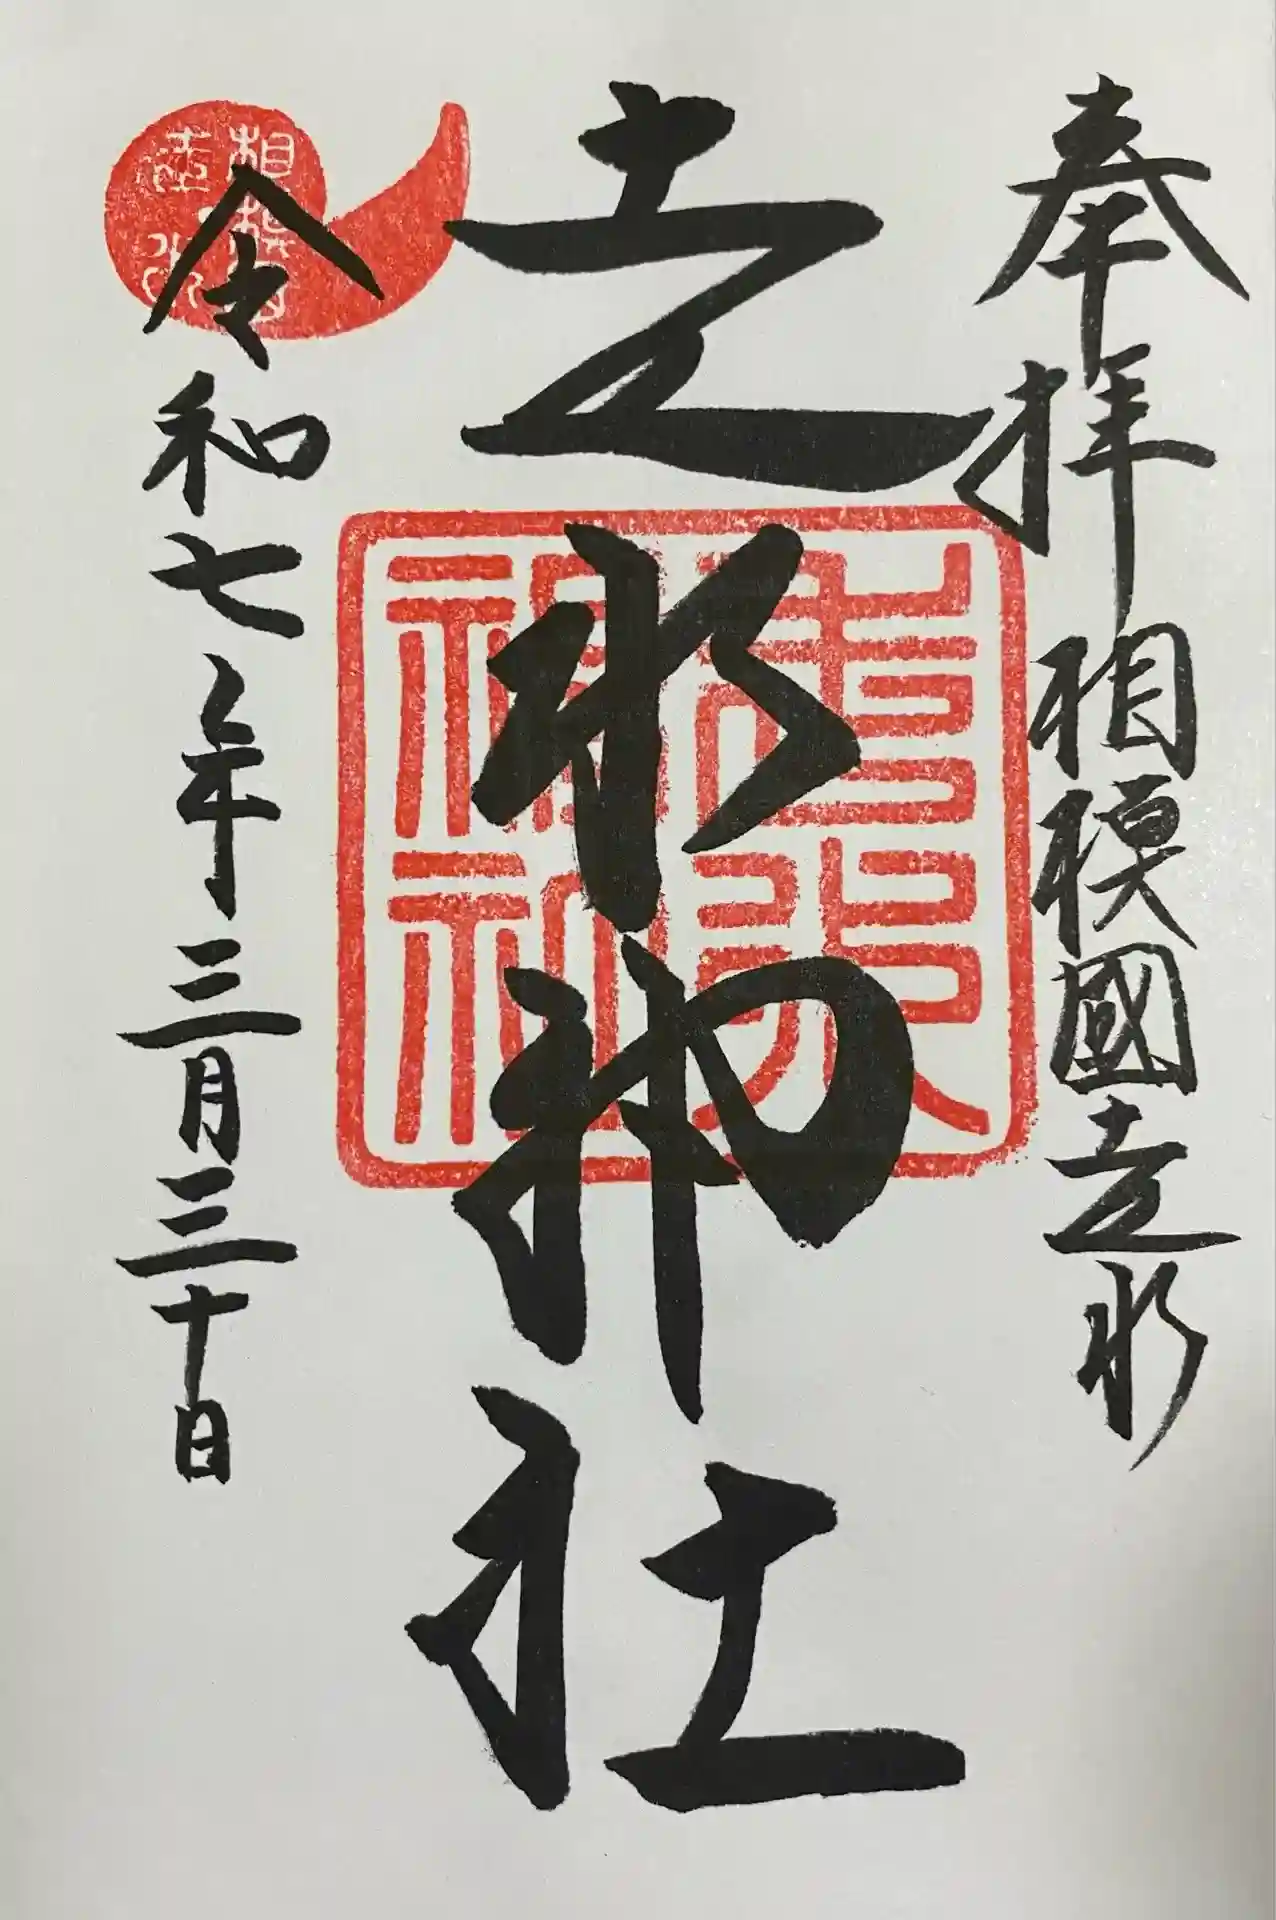 奉拝 相模國走水
走水神社
令和七年三月三十日
相模国
走水